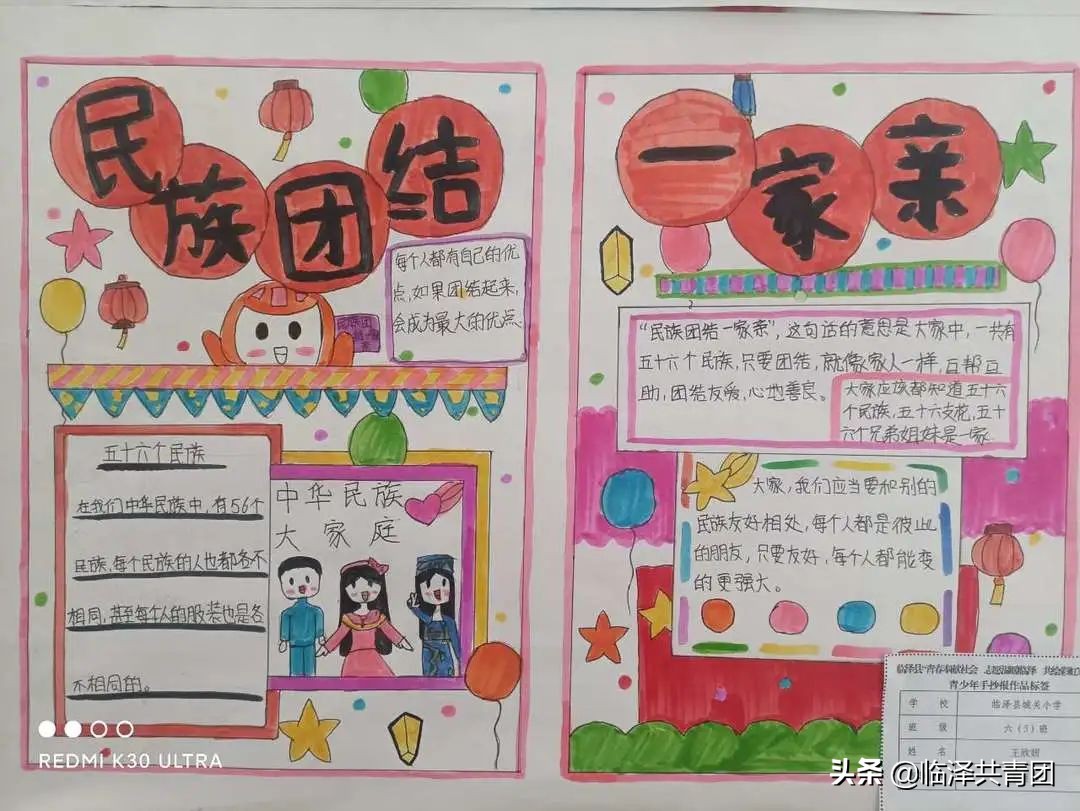 民族团结
每个人都有自己的优
点,如果团结起来,
会成为最大的优点
五十六个民族
在我们中华民族中,有56个
民族,每个民族的人也都各不
相同,甚至每个人的服装也是各
不相同的。
中华民族
大家庭
REDMI K30 ULTRA
一家亲
“民族团结一家亲”,这句话的意思是大家中,一共有
五十六个民族,只要团结,就像家人一样,互帮互
助,团结友爱,心地善良。
大家应该都知道五十六
个民族,五十六支花,五十
六个兄弟姐妹是一家
大家,我们应当要和别的
民族友好相处,每个人都是彼此
的朋友,只要友好,每个人都能变
的更强大。
青少年手抄报作品标签
学 校 临泽县城关小学
班 级 六(5)班
姓 名
头条 @临泽共青团